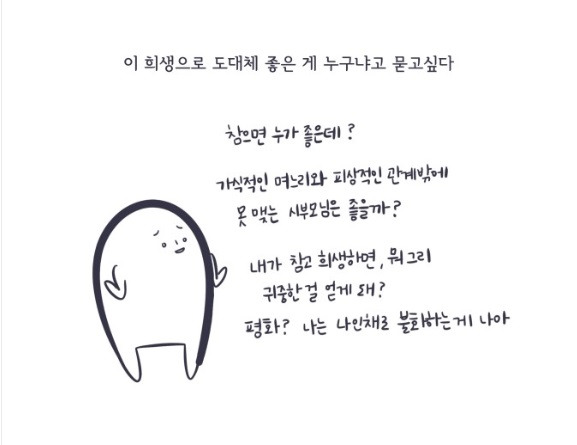 이 희생으로 도대체 좋은 게 누구냐고 묻고싶다
참으면 누가 좋은데?
가식적인 며느리와 피상적인 관계밖에
못 맺는 시부모님은 좋을까?
내가 참고 희생하면, 뭐 그리
귀중한 걸 얻게 돼?
평화? 나는 나인채로 불화하는게 나아